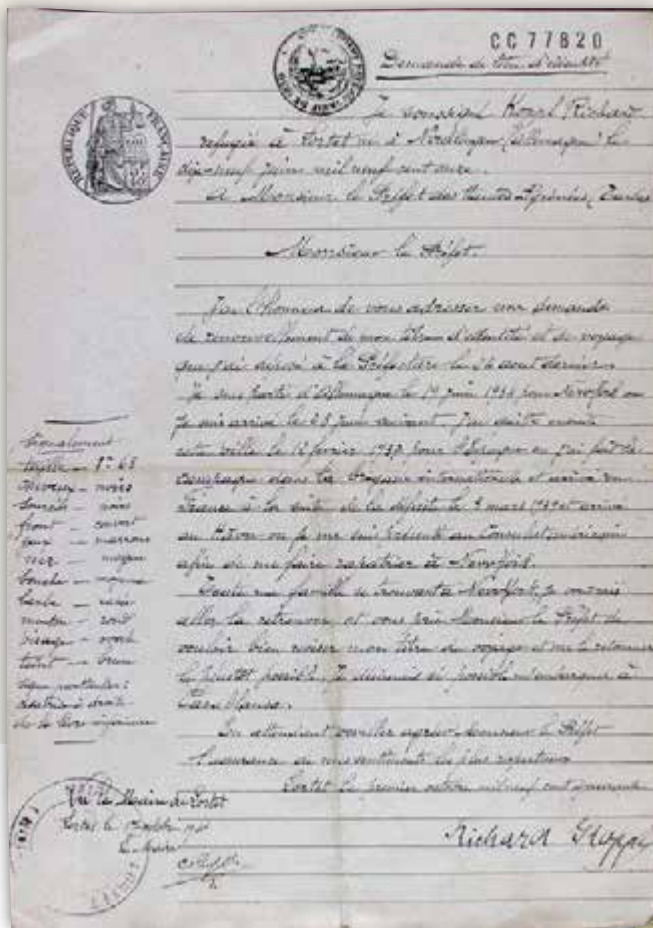 CC 77820
Demande de titre d'identité
RÉPUBLIQUE FRANÇAISE
Je soussigné Richard
refugié à Lortet né à Nordlingen (Allemagne) le
dix-neuf juin mil neuf cent onze.
A Monsieur le Préfet des Hautes Pyrénées, Tarbes
Monsieur le Préfet.
J'ai l'honneur de vous adresser une demande
de renouvellement de mon titre d'identité et de voyage
que j'ai à la Préfecture le aout dernier.
Je suis parti d'Allemagne le juin pour Newyork ou
je suis arrivé le juin suivant. J'ai quitté ensuite
cette ville le 12 fevrier 1937 pour l'Espagne ou j'ai fait la
campagne dans la Brigade internationale et arrivé en
France à la suite de la défaite le mars 1939 et arrivé
au Havre ou je me suis présenté au Consulat américain
afin de me faire rapatrier à Newyork.
Toute ma famille se trouvant à Newyork, je voudrais
aller la retrouver et vous prie Monsieur le Préfet de
vouloir bien viser mon titre de voyage et me le retourner
le plustôt possible. Je désirerais si possible m'embarquer à
Casablanca.
En attendant veuillez agréer Monsieur le Préfet
l'assurance de mes sentiments les plus respectueux
Lortet le premier octobre mil neuf cent quarante
Richard
Signalement
taille — 1m 68
cheveux — noirs
sourcils — noirs
front — couvert
yeux — marrons
nez — moyen
bouche — moyenne
barbe — rasée
menton — rond
visage — ovale
teint — brun
signe particulier :
cicatrice à droite
de la lèvre inférieure
Vu la Mairie de Lortet
Lortet le octobre
Le Maire